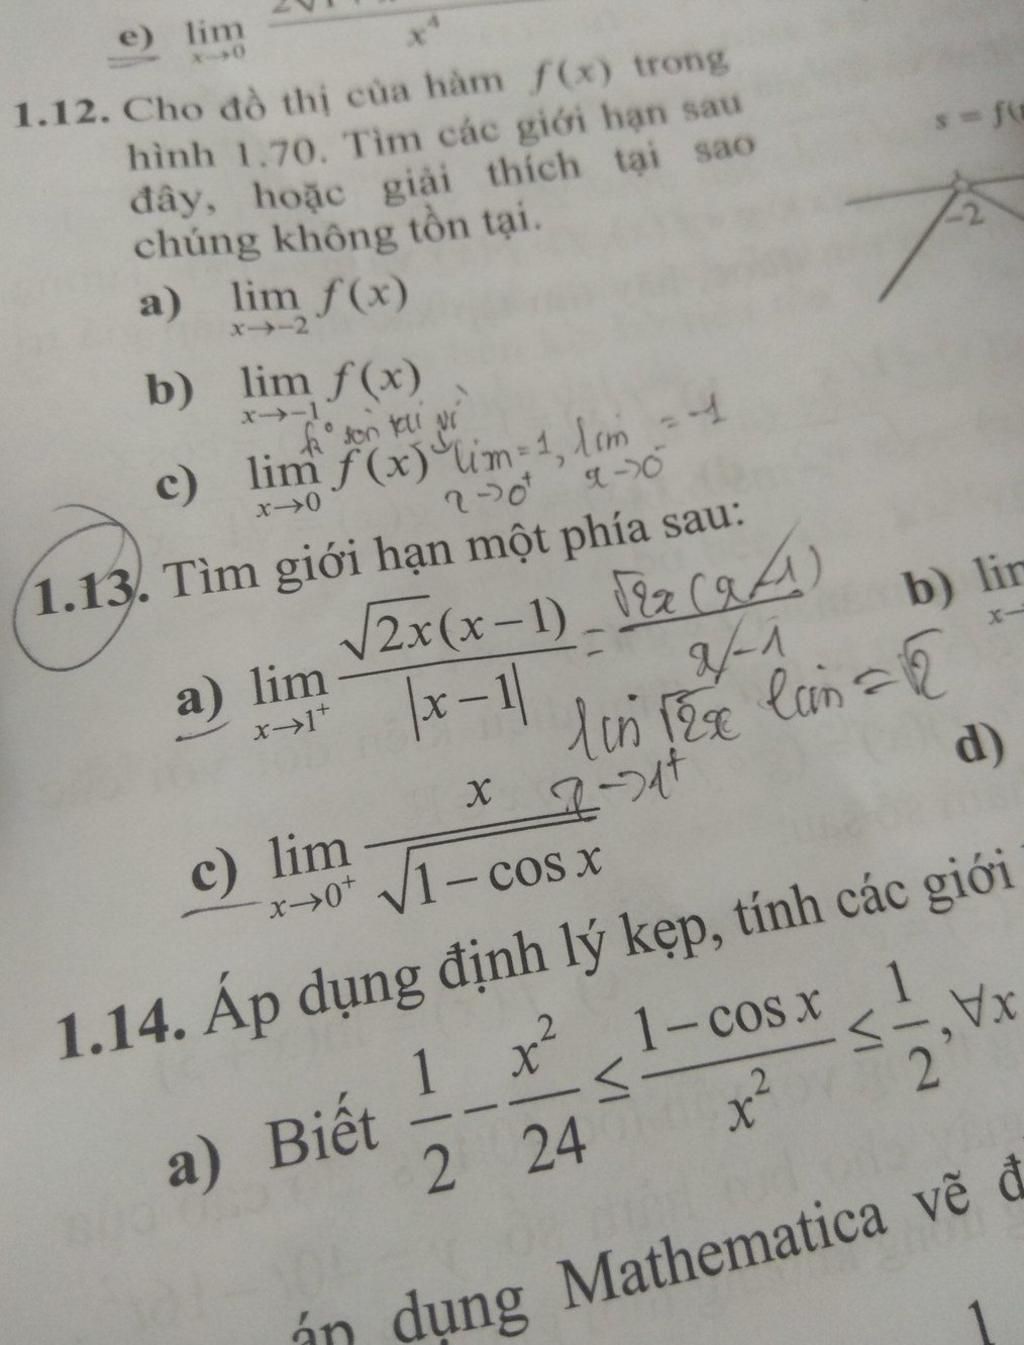 e) lim
x→0
x⁴
1.12. Cho đồ thị của hàm f(x) trong
hình 1.70. Tìm các giới hạn sau
đây, hoặc giải thích tại sao
chúng không tồn tại.
s = f(
-2
a) lim f(x)
x→-2
b) lim f(x)
x→-1
c) lim f(x) lim = 1, lim = -1
x→0 x→0⁺ x→0⁻
1.13. Tìm giới hạn một phía sau:
a) lim √2x(x-1) / |x-1| = √2x(x-1) / x-1
x→1⁺
lim √2x lim = √2
x→1⁺
b) lim
x→
c) lim x / √1-cos x
x→0⁺
d)
1.14. Áp dụng định lý kẹp, tính các giới
a) Biết 1/2 - x²/24 ≤ 1-cos x / x² ≤ 1/2, ∀x
áp dụng Mathematica vẽ đ
1